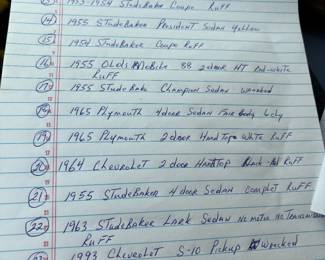 1953-1954 Studebaker Coupe Ruff
14 1955 Studebaker President Sedan Yellow
15 1954 Studebaker Coupe Ruff
16 1955 Oldsmobile 88 2 door HT Red-white
Ruff
17 1955 Studebaker Champion Sedan Wrecked
1965 Plymouth 4 door Sedan Fair body 6 cly
19 1965 Plymouth 2 door Hand Top White Ruff
20 1964 Chevrolet 2 door Hardtop Black Ruff
21 1955 Studebaker 4 door Sedan Complet Ruff
22 1963 Studebaker Lark Sedan No Motor No Transmission
Ruff
1993 Chevrolet S-10 Pickup Wrecked